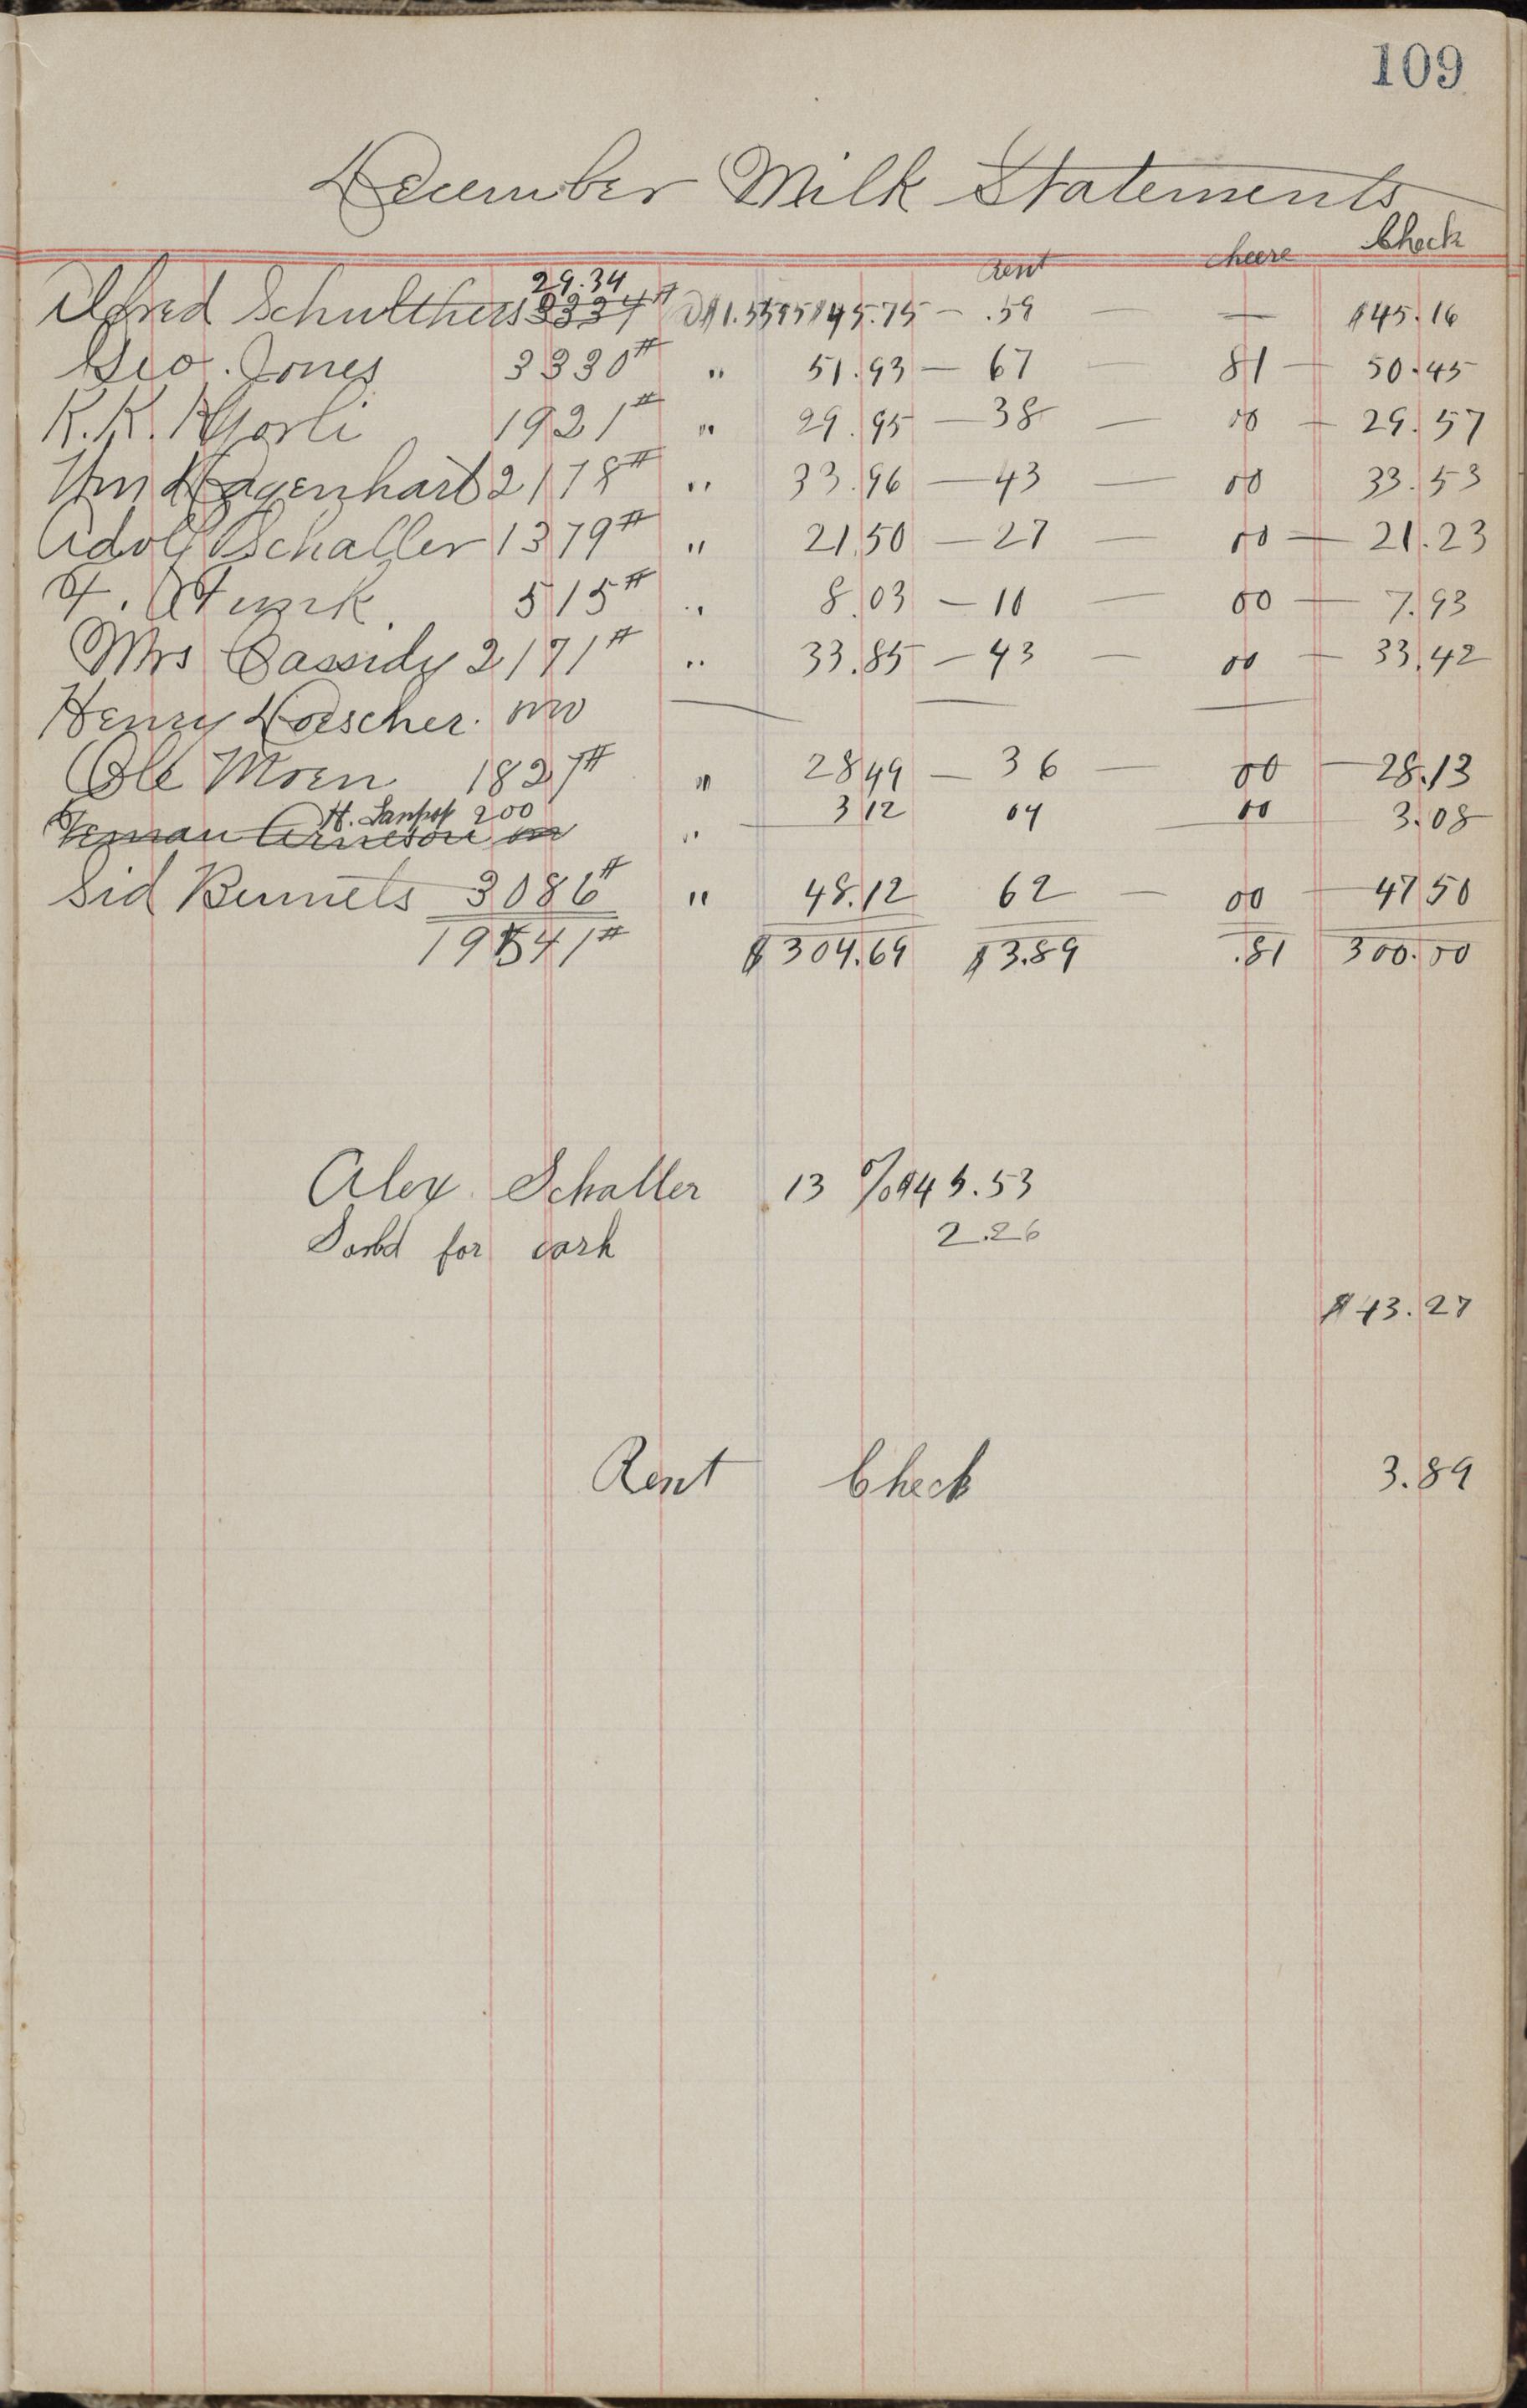 109
December Milk Statements
Rent cheese Check
29.34
Alfred Schulthers 3334# @$1.5595 $45.75 — .59 — — $45.16
Geo. Jones 3330# " 51.93 — 67 — 81 — 50.45
K.K. 1921# " 29.95 — 38 — 00 — 29.57
Wm Hagenhart 2178# " 33.96 — 43 — 00 33.53
Adolf Schaller 1379# " 21.50 — 27 — 00 — 21.23
F. A Funk 515# " 8.03 — 10 — 00 — 7.93
Mrs Cassidy 2171# " 33.85 — 43 — 00 — 33.42
Henry Loescher. 000 — — —
Ole Moen 1827# " 28 49 — 36 — 00 — 28.13
H. 200 " 3 12 04 00 3.08
Arneson
Sid Bennets 3086# " 48.12 62 — 00 — 47 50
19541# $304.69 $3.89 .81 300.00
Alex Schaller 13 % $45.53
Sold for cash 2.26
$43.27
Rent Check 3.89